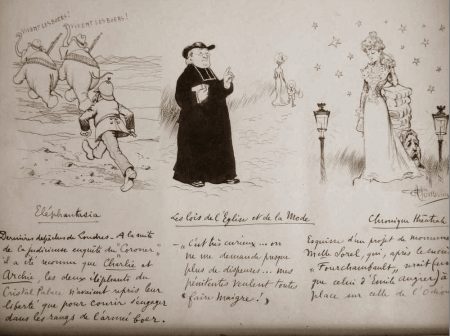 VIVENT LES BOERS!
VIVENT LES BOERS!
Eléphantasia
Dernières dépêches de Londres - A la suite
de la judicieuse enquête du "Coroner"
il a été reconnu que "Charlie et
Archie, les deux éléphants du
Cristal Palace n'avaient repris leur
liberté que pour courir s'engager
dans les rangs de l'armée boer.
Les lois de l'Eglise et de la Mode
- "C'est bien curieux... on
ne me demande presque
plus de dispenses... mes
pénitentes veulent toutes
"faire maigre!"
Chronique théâtrale
Esquisse d'un projet de monument
Melle Sorel, qui, après le succès
"Fourchambault"
que celui d'Emile Augier) à
place sur celle de l'Odéon